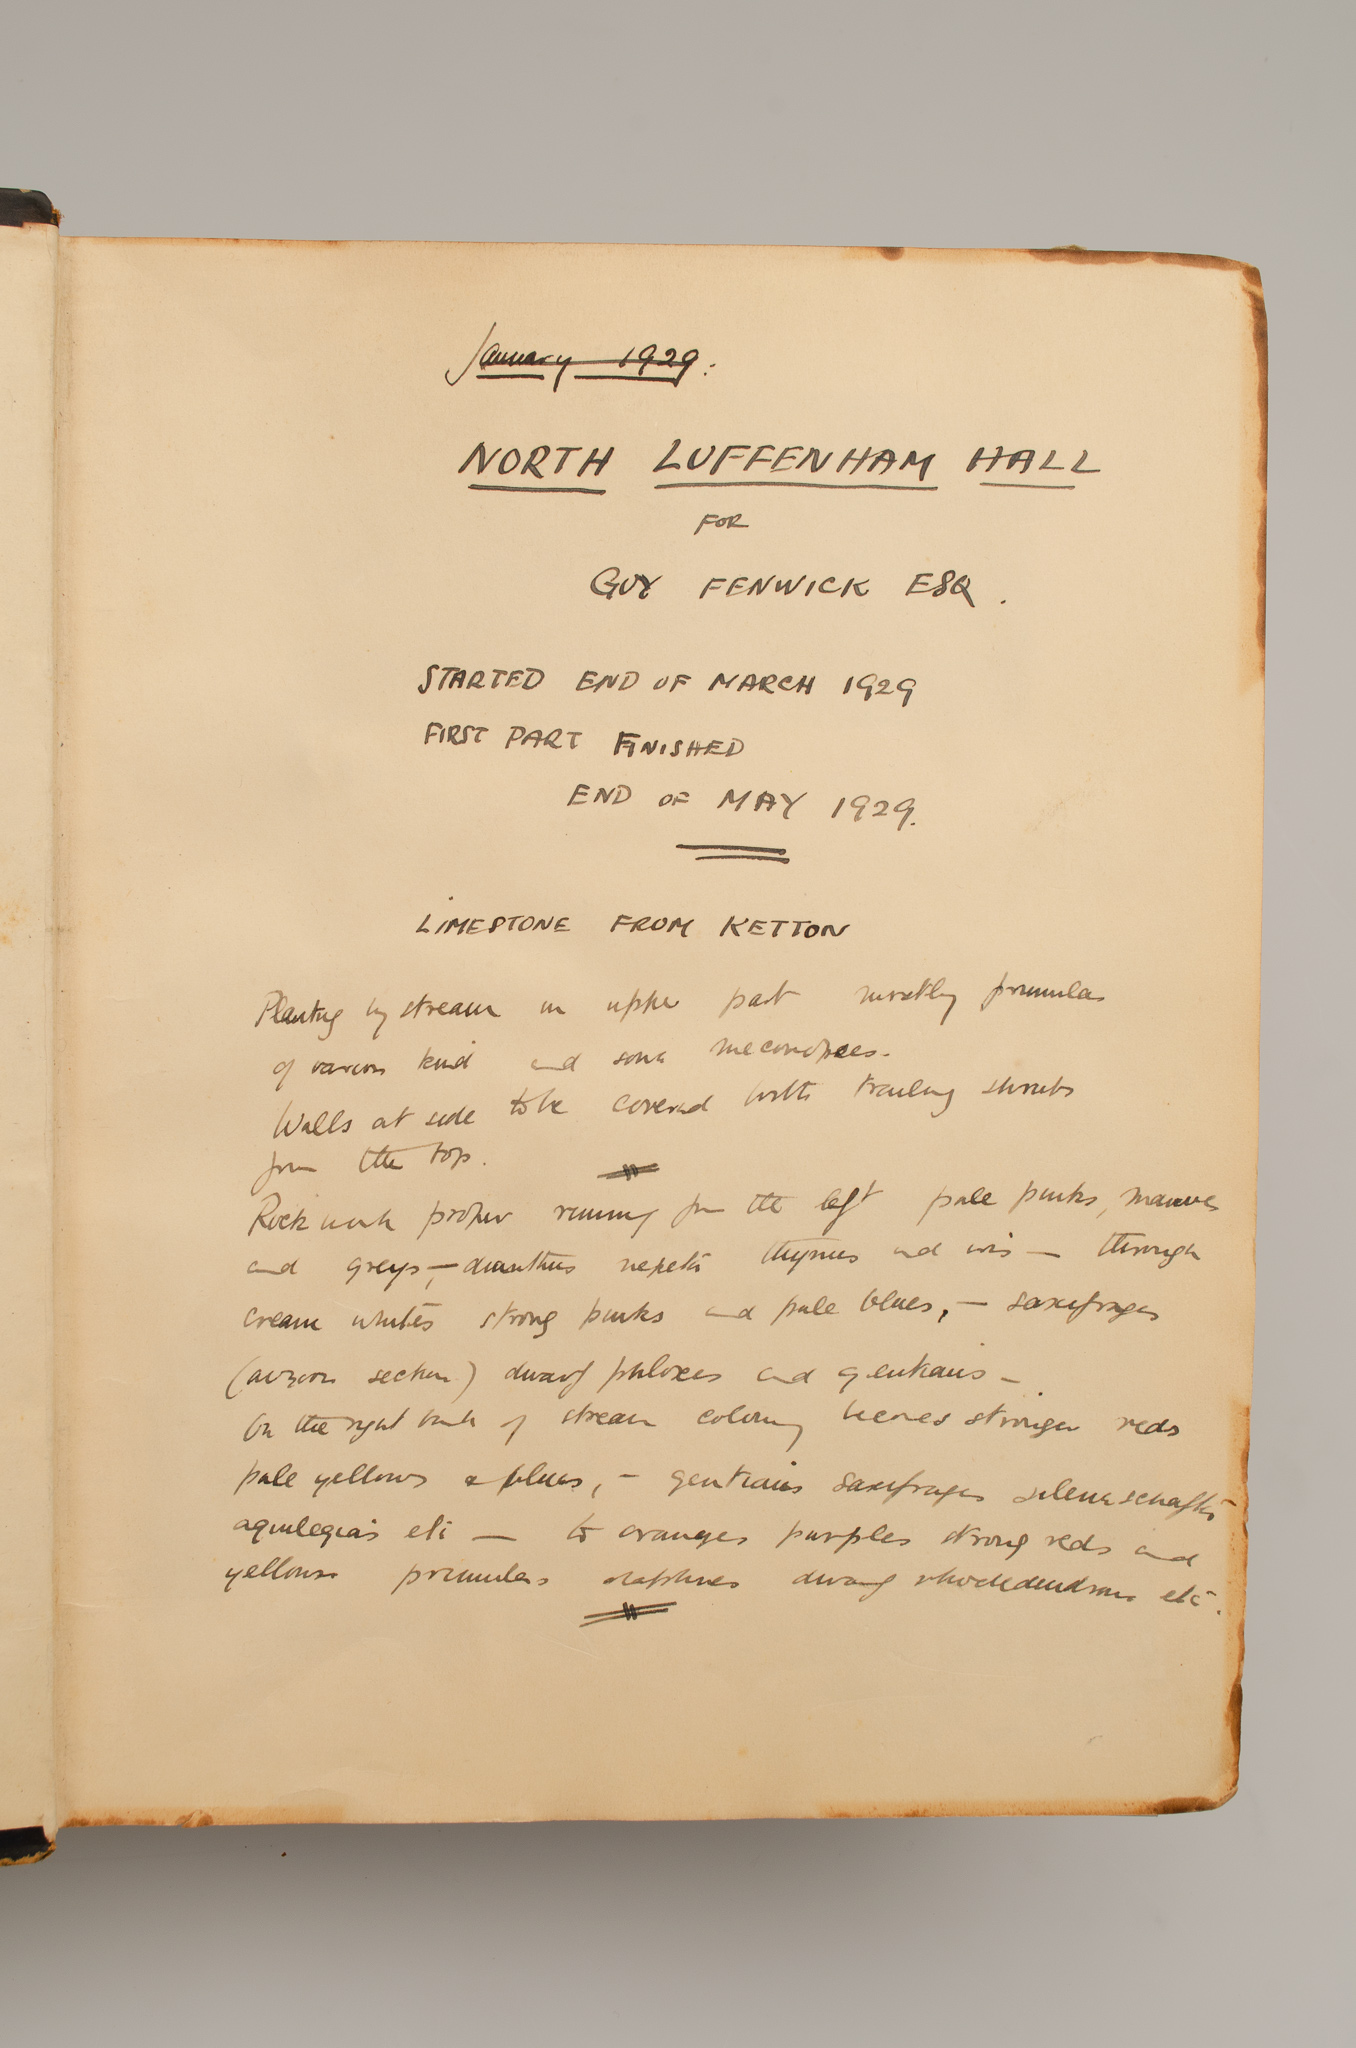 January 1929.
NORTH LUFFENHAM HALL
FOR
GUY FENWICK ESQ.
STARTED END OF MARCH 1929
FIRST PART FINISHED
END OF MAY 1929.
LIMESTONE FROM KETTON
Planting by stream in upper part mostly primulas
of various kind and some
Walls at side to be covered with trailing shrubs
from the top.
Rock work proper running from the left pale pinks, mauves
and greys, — dianthus nepeta thymus and iris — through
cream whites strong pinks and pale blues, — saxifrages
(aizoon section) dwarf phloxes and gentians —
On the right bank of stream colouring stronger reds
pale yellows & blues, — gentians saxifrages silene schafta
aquilegias etc — to oranges purples strong reds and
yellows primulas daphnes dwarf rhododendrons etc.